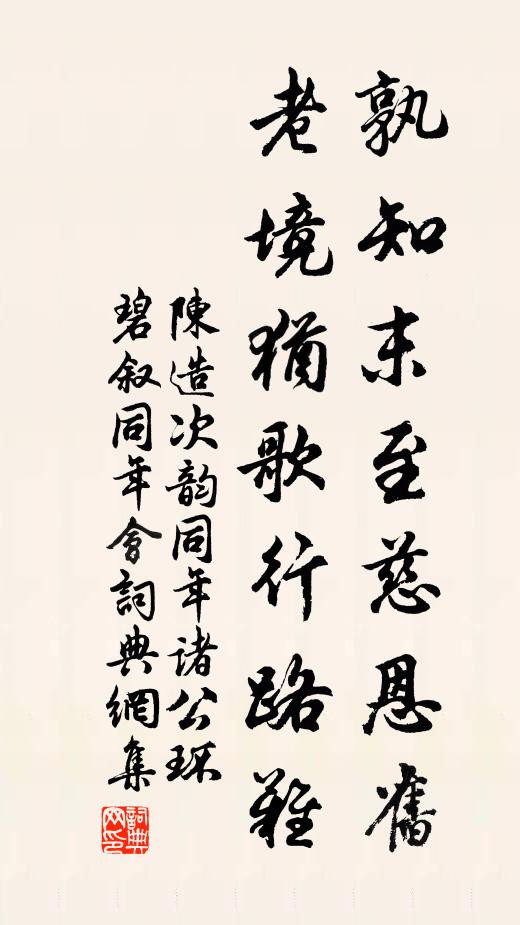 孰知未至慈恩舊
老境猶歌行路難
陳造次韵同年諸公環
碧叙同年會詞典網集
詞典網印